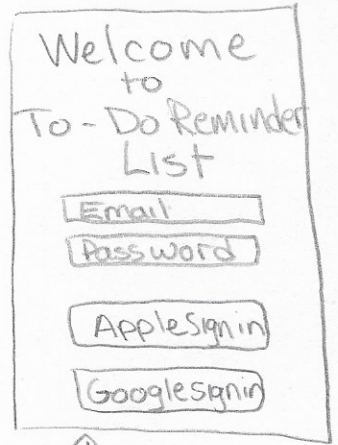 Welcome
to
To-Do Reminder
List
Email
Password
Apple Sign in
Google Sign in